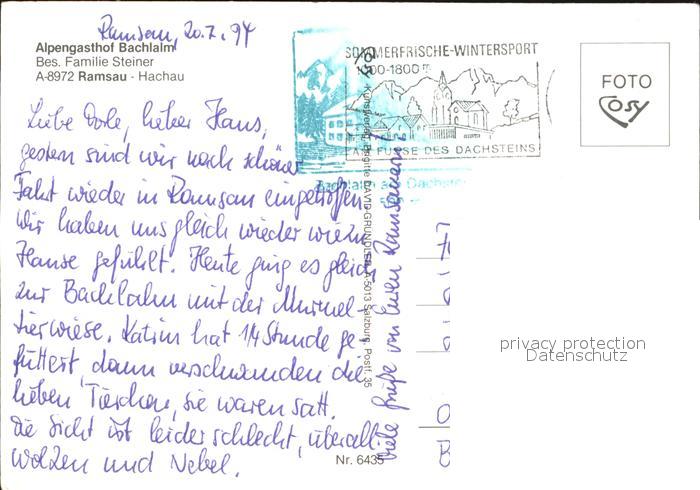 Ramsau, 20.7.94
Alpengasthof Bachlalm
Bes. Familie Steiner
A-8972 Ramsau - Hachau
Liebe Dole, lieber Hans,
gestern sind wir nach schöner
Fahrt wieder in Ramsau eingetroffen.
Wir haben uns gleich wieder wie zu
Hause gefühlt. Heute ging es gleich
zur Bachlalm mit der Murmel-
tierwiese. Katrin hat 1/4 Stunde ge-
füttert, dann verschwanden die
lieben Tierchen, sie waren satt.
Die Sicht ist leider schlecht, überall
Wolken und Nebel.
viele Grüße von Euren Ramsauern!
SOMMERFRISCHE-WINTERSPORT
1000-1800m
AM FUSSE DES DACHSTEINS
Bachlalm am Dachstein
Kunstverlag Brigitte DAVID-GRÜNDLER, A-5013 Salzburg, Postf. 35
Nr. 6435
FOTO
Cosy
privacy protection
Datenschutz